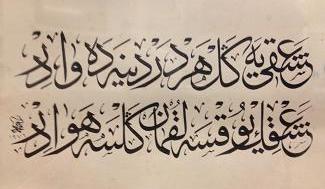 عشقی یه كل هر دردینه ده وادر
عشقك یوقسه لقمان كلسه هوادر